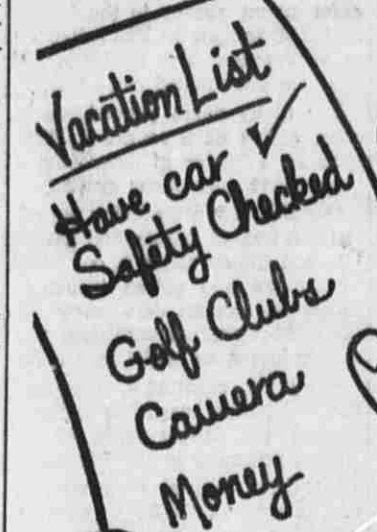 Vacation List
Have car ✓
Safety Checked
Golf Clubs
Camera
Money